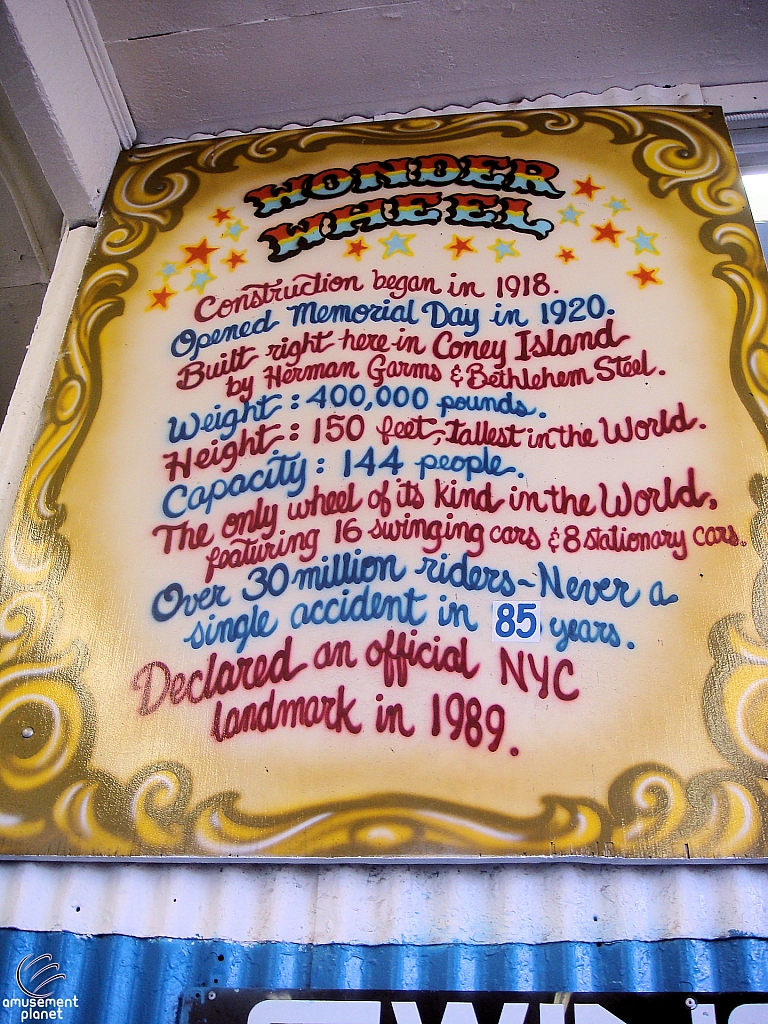 WONDER
WHEEL
Construction began in 1918.
Opened Memorial Day in 1920.
Built right here in Coney Island
by Herman Garms & Bethlehem Steel.
Weight: 400,000 pounds.
Height: 150 feet, tallest in the World.
Capacity: 144 people.
The only wheel of its kind in the World,
featuring 16 swinging cars & 8 stationary cars.
Over 30 million riders - Never a
single accident in 85 years.
Declared an official NYC
landmark in 1989.
amusement
planet